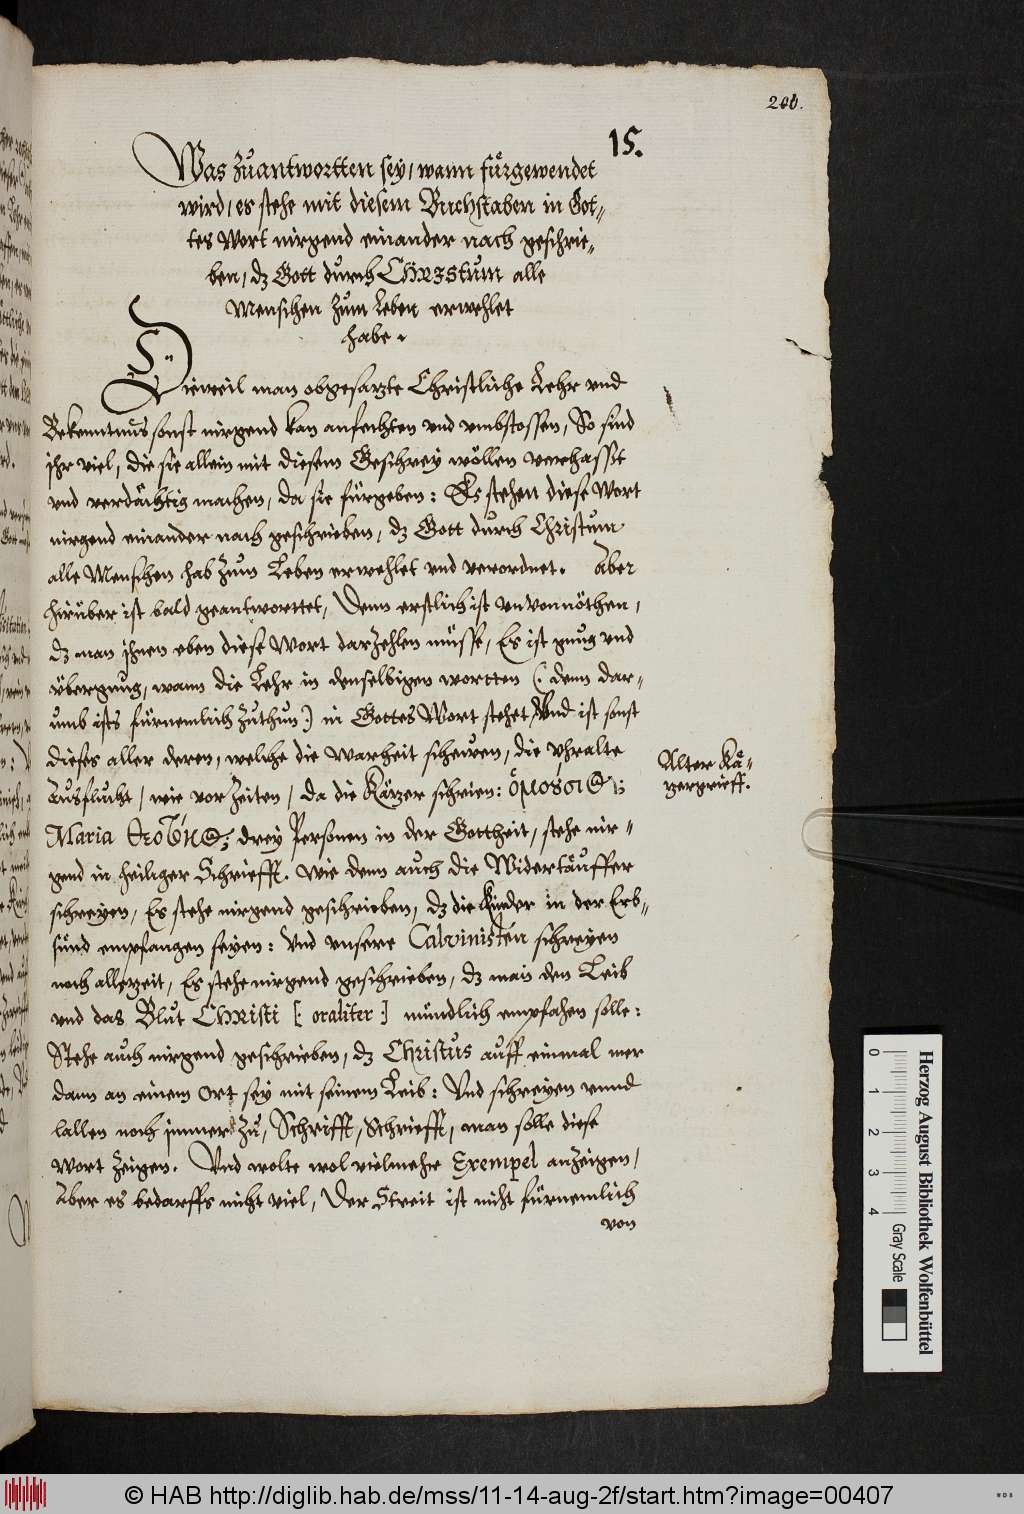 200.
15.
Was zuantwortten sey, wann fürgewendet
wird, es stehe mit diesem Buchstaben in Got-
tes Wort nirgend einander nach geschrie-
ben, dz Gott durch CHRISTUM alle
Menschen zum Leben erwehlet
habe.
Dieweil man obgesatzte Christliche Lehr vnd
Bekenntnus sonst nirgend kan anfechten vnd vmbstossen, So sind
jhr viel, die sie allein mit diesem Geschrey wöllen verhasst
vnd verdächtig machen, da sie fürgeben: Es stehen diese Wort
nirgend einander nach geschrieben, dz Gott durch Christum
alle Menschen hab zum Leben erwehlet vnd verordnet. Aber
hirüber ist bald geantworttet, Denn erstlich ist vnvonnöthen,
dz man jhnen eben diese Wort darzehlen müsse, Es ist gnug vnd
übergnug, wann die Lehr in denselbigen wortten (: denn dar-
umb ists fürnemlich zuthun :) in Gottes Wort stehet, Vnd ist sonst
dieses aller deren, welche die warheit scheuen, die vhralte
Ausflucht, wie vor Zeiten, da die Kätzer schrien: ὁμοούσιος;
Maria θεοτόκος; drey Personen in der Gottheit, stehe nir-
gend in heiliger Schriefft. Wie denn auch die Widertäuffer
schreyen, Es stehe nirgend geschrieben, dz die Kinder in der Erb-
sünd empfangen seyen: Vnd vnsere Calvinisten schreyen
noch allezeit, Es stehe nirgend geschrieben, dz man den Leib
vnd das Blut CHRISTI [: oraliter :] mündlich empfahen solle:
Stehe auch nirgend geschrieben, dz Christus auff einmal mer
dann an einem ort sey mit seinem Leib: Vnd schreyen vnnd
lallen noch jmmer zu, Schrifft, Schriefft, man solle diese
Wort zeigen. Vnd wolte wol vielmehr Exempel anzeigen,
Aber es bedarffs nicht viel, Der Streit ist nicht fürnemlich
von
Alter Kä-
tzergrieff.
Herzog August Bibliothek Wolfenbüttel
0 1 2 3 4
Gray Scale
© HAB http://diglib.hab.de/mss/11-14-aug-2f/start.htm?image=00407